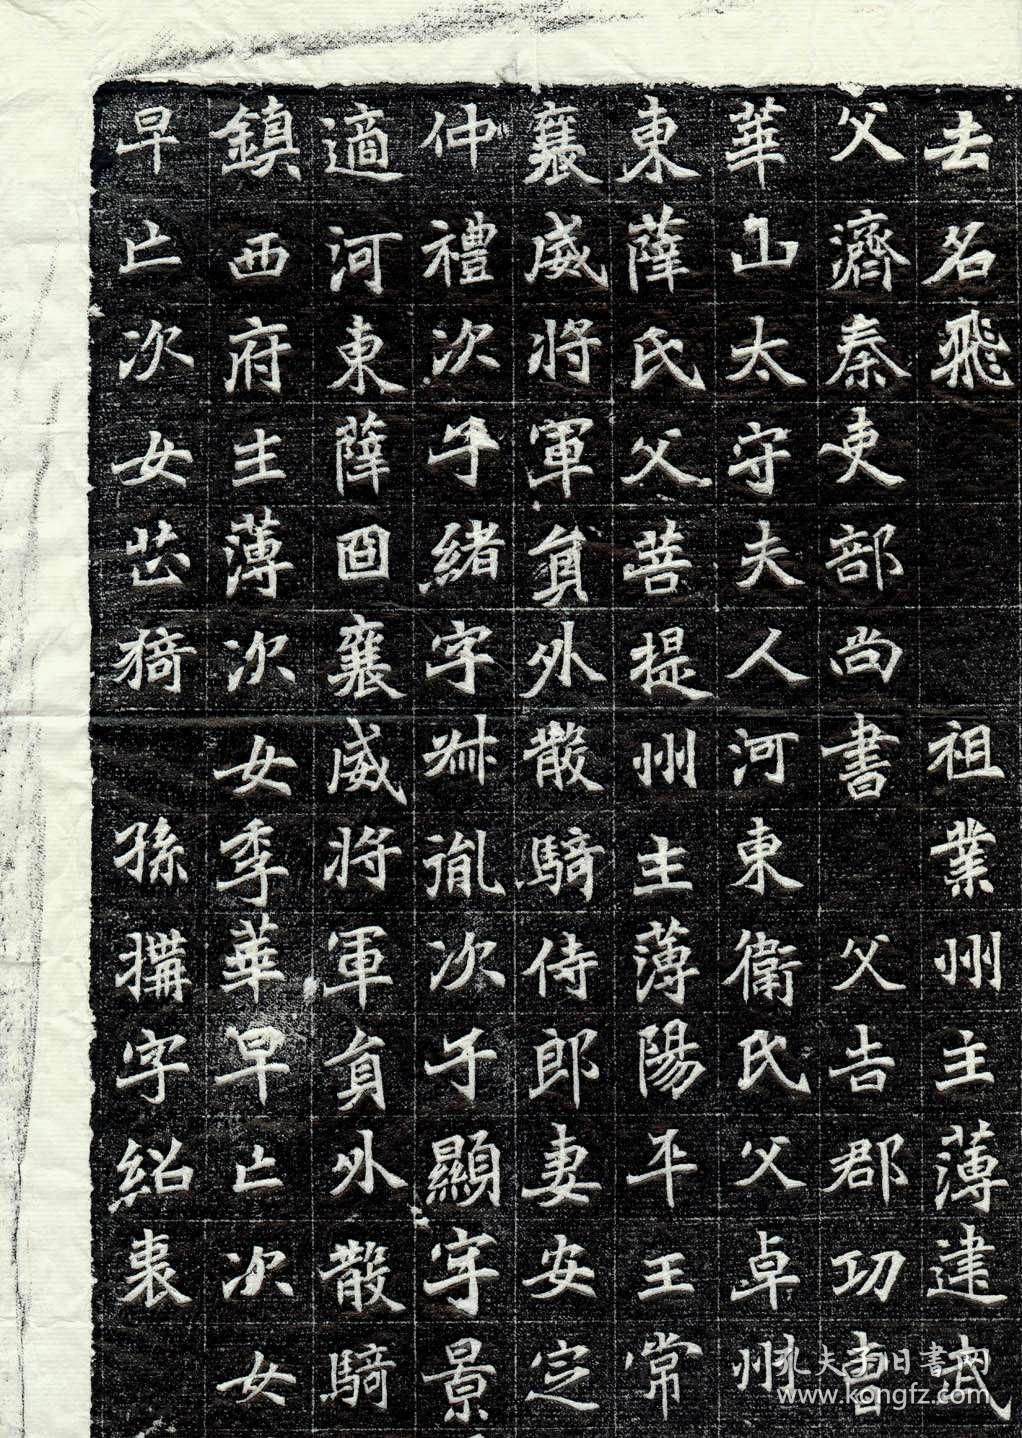 去名飛　祖業州主薄建武
父濟秦吏部尚書　父吉郡功曹
華山太守夫人河東衛氏父卓州
東薛氏父菩提州主薄陽平王常
襄威將軍員外散騎侍郎妻安定
仲禮次子緒字叔胤次子顯字景
適河東薛固襄威將軍員外散騎
鎮西府主薄次女季華早亡次女
早亡次女芷猗　孫搆字紹
孔夫子旧書网
www.kongfz.com